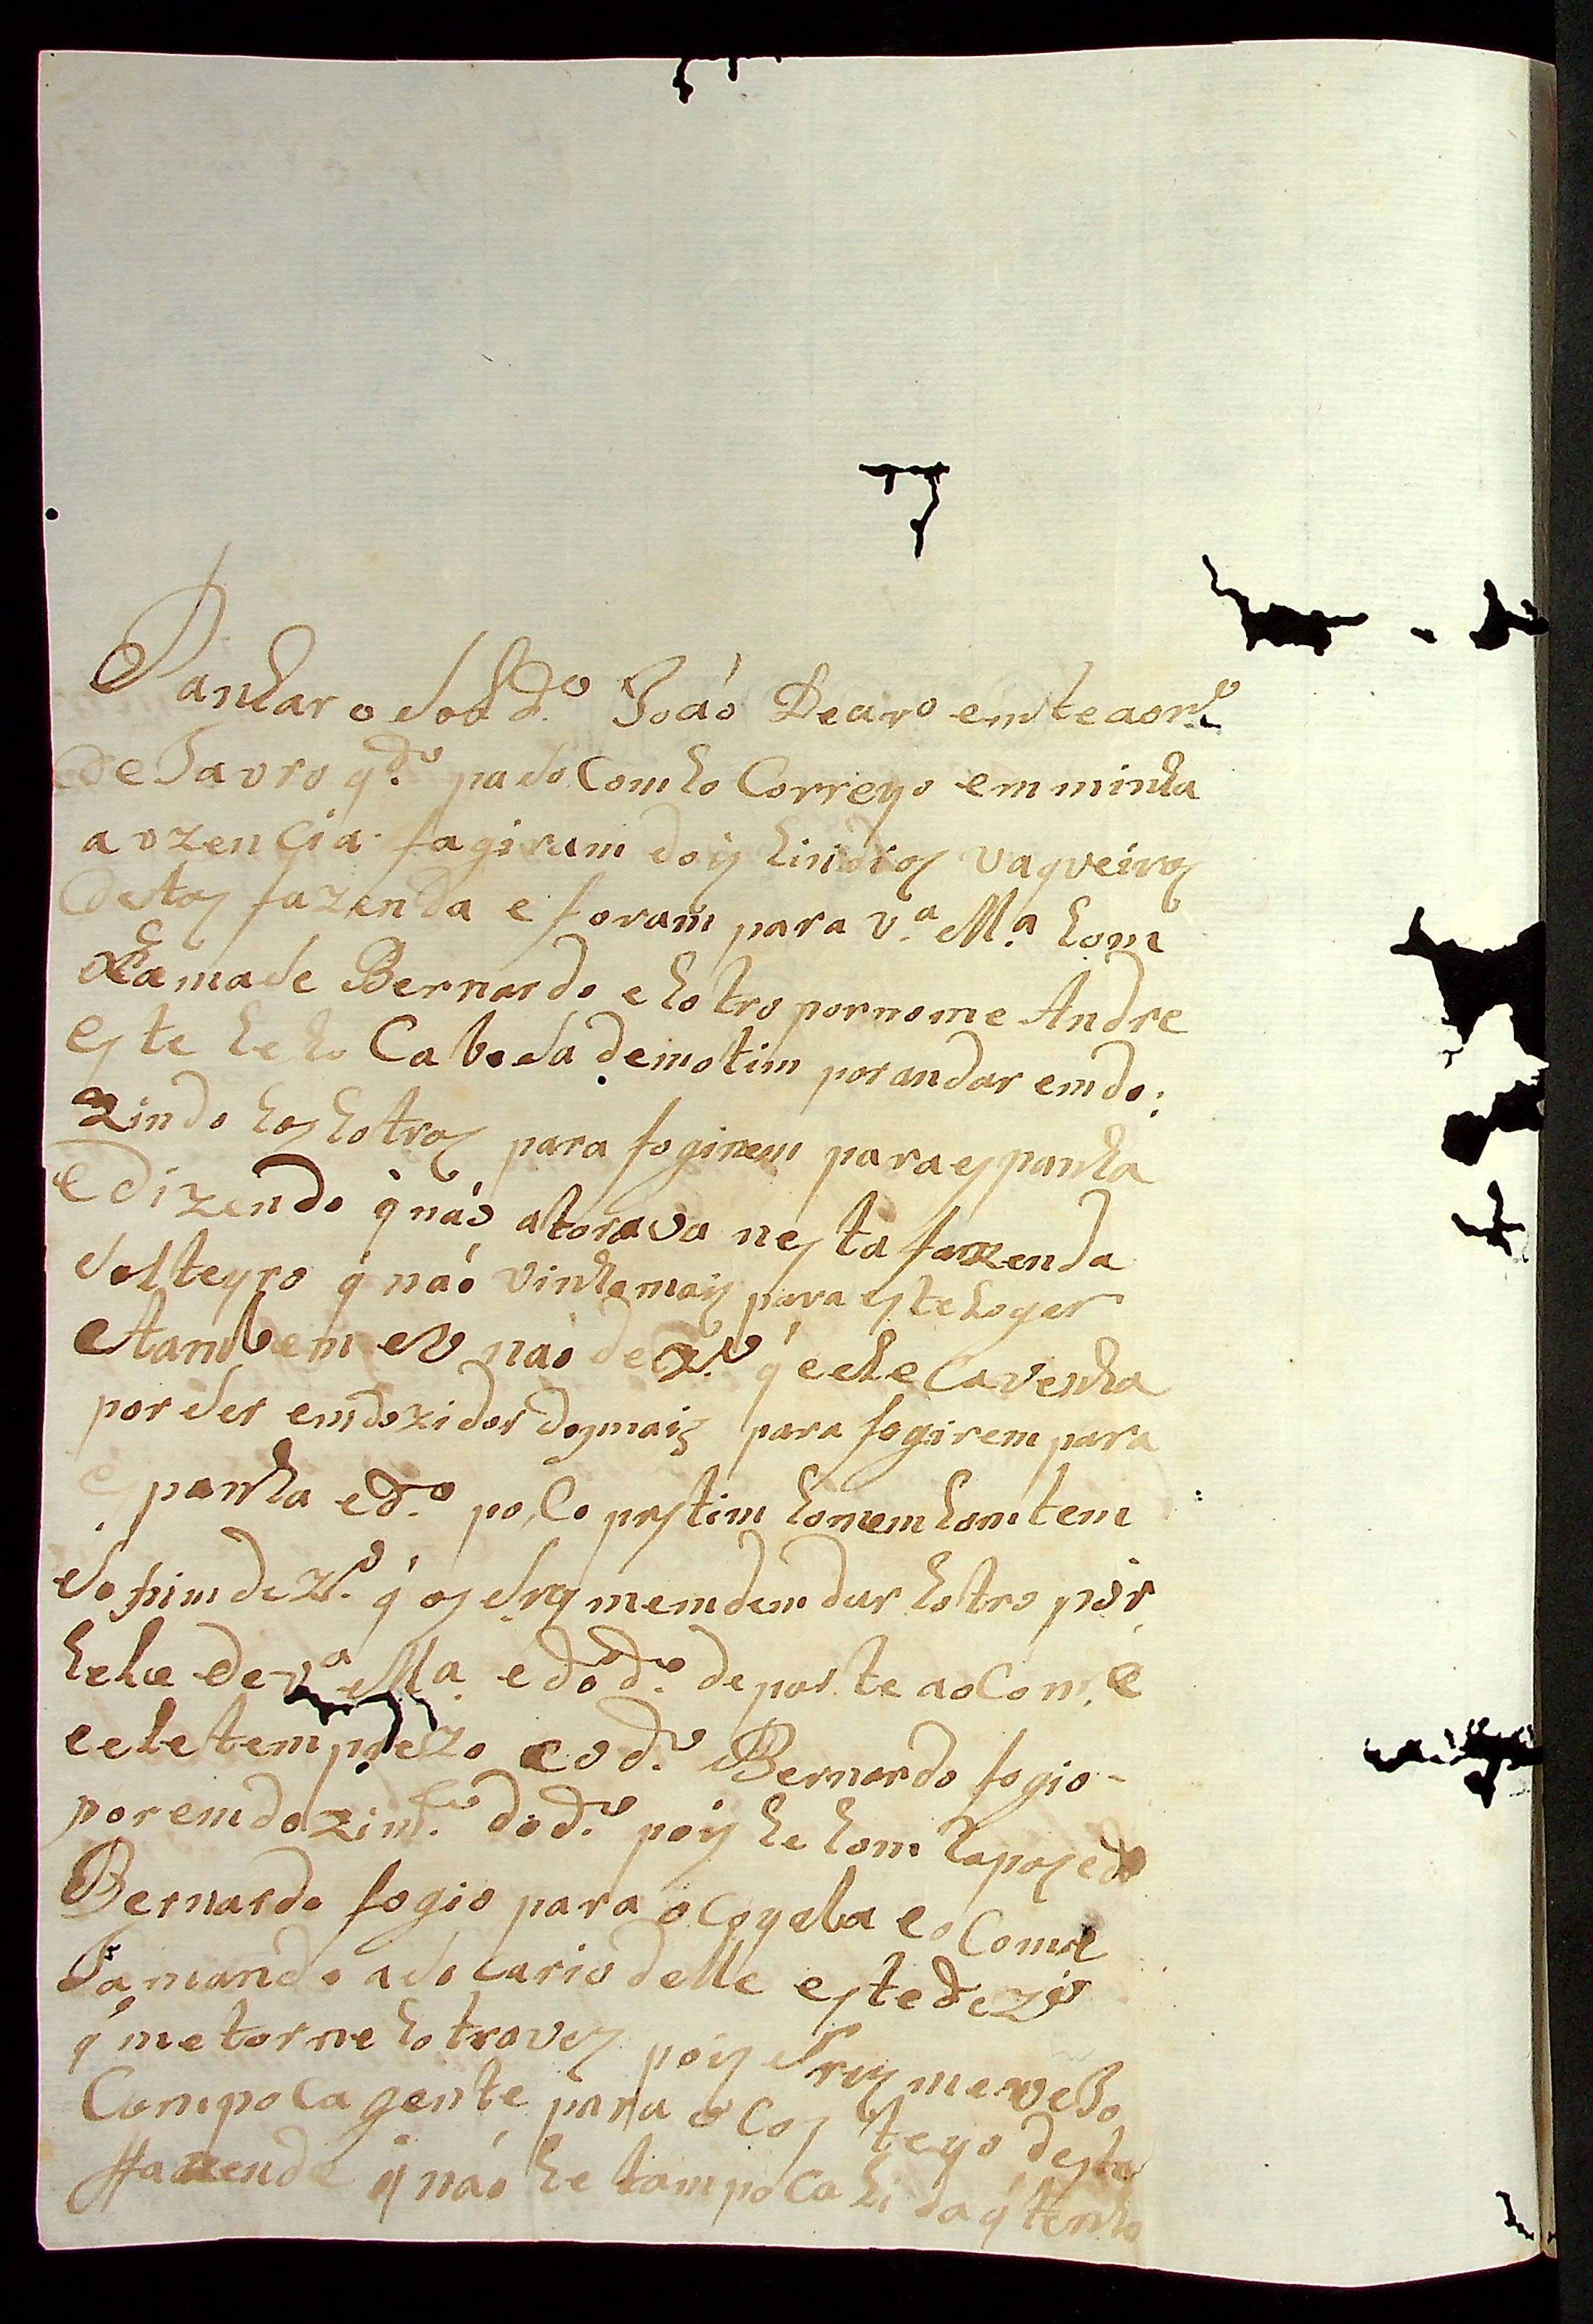 Panhar o Sold.º João De em te
de Tauro q.do pa So Com ho Correyo em minha
auzencia fugiram dois hindios vaqueiros
destas fazenda e foram para v.ª M.ª hom
Chamase Bernardo e hotro por nome Andre
Este he ho Cabesa de motim por andar emdo:
zindo hos hotros para fogirem para espanha
e dizendo q̃ não aturava nesta fazenda
Solteyro q̃ não vinha mais para este logar
e tambem eu não dez.º q̃ ele Ca venha
por Ser emdozidor dos mais para fogirem para
espanha e d.º poCo prestim homem hom tem
So fim dez.º q̃ os Sres memdem dar hotro por
hele de v.ª M.ª e do d.º de parte ao Com.e
e ele tem prezo e o d.º Bernardo fogio
por emdozim.to do d.º pois he hom rapos e
Bernardo fogio para o e o Com.e
Ja mando a So cario delle este dez.º
q̃ me torne hotra ves pois Sres me veJo
Com poCa gente para o Costeyo desta
ffazenda q̃ não he tam poCa hida q̃ tenho